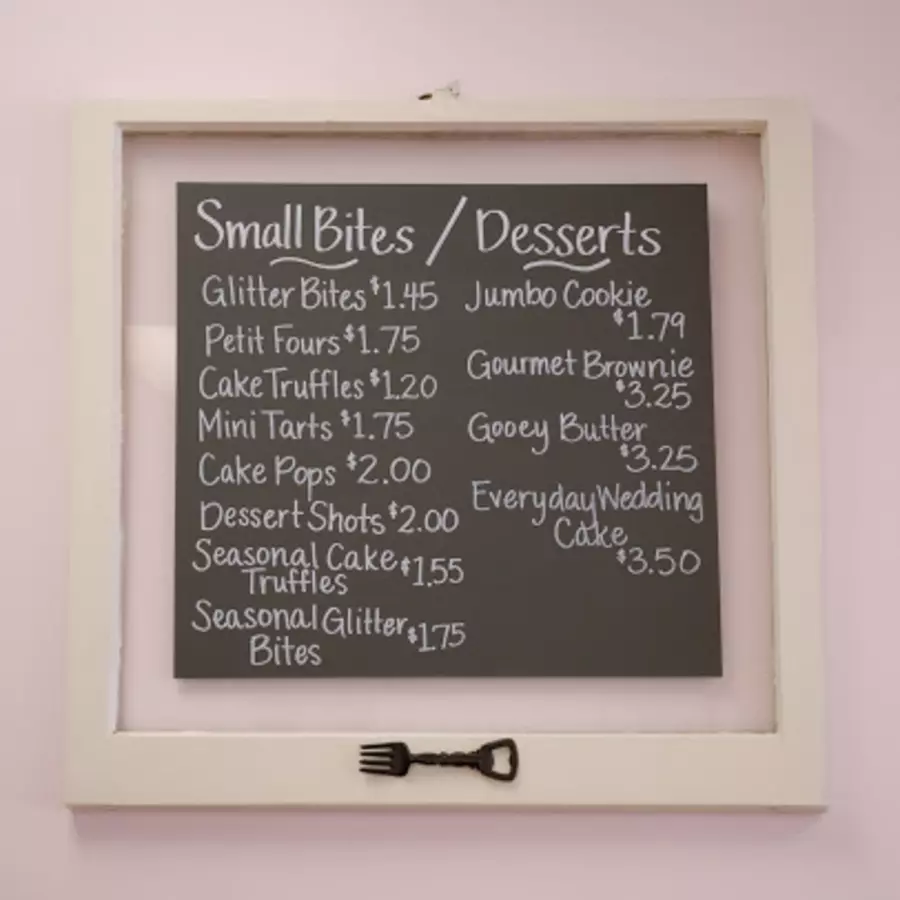 Small Bites / Desserts
Glitter Bites $1.45
Petit Fours $1.75
Cake Truffles $1.20
Mini Tarts $1.75
Cake Pops $2.00
Dessert Shots $2.00
Seasonal Cake
Truffles $1.55
Seasonal Glitter
Bites $1.75
Jumbo Cookie
$1.79
Gourmet Brownie
$3.25
Gooey Butter
$3.25
Everyday Wedding
Cake
$3.50